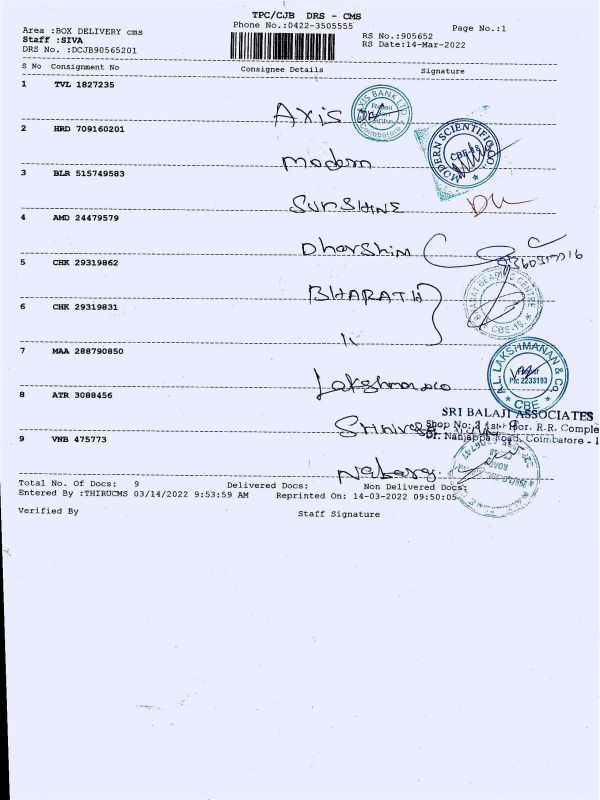 TPC/CJB DRS - CMS
Area :BOX DELIVERY cms
Phone No.:0422-3505555
Page No.:1
Staff :SIVA
RS No.:905652
DRS No. :DCJB90565201
RS Date:14-Mar-2022
S No Consignment No Consignee Details Signature
1 TVL 1827235
Axis
AXIS BANK LTD
Coimbatore
2 HRD 709160201
modern
MODERN SCIENTIFIC CO
CBE-18
3 BLR 515749583
SUNSHINE
4 AMD 24479579
Dharshini
5 CHK 29319862
BHARATH
BEARING CENTRE
CBE-18.
6 CHK 29319831
11
7 MAA 288790850
Lakshmanan
A.L. LAKSHMANAN & Co.
Ph: 2233193
CBE
8 ATR 3088456
SRI BALAJI ASSOCIATES
Shop No: 2 1st Floor. R.R. Comple
Dr. Nanjappa Road, Coimbatore - 1
9 VNB 475773
Total No. Of Docs: 9 Delivered Docs: Non Delivered Docs:
Entered By :THIRUCMS 03/14/2022 9:53:59 AM Reprinted On: 14-03-2022 09:50:05
Verified By Staff Signature